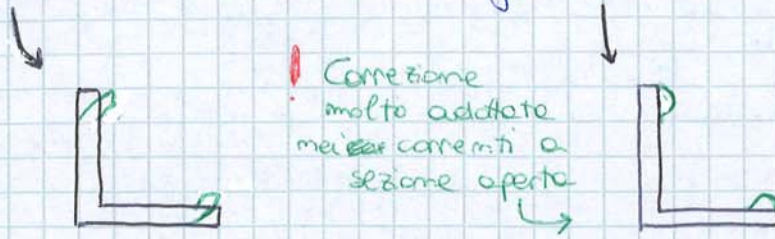 ! Correzione
molto adottata
nei correnti a
sezione aperta